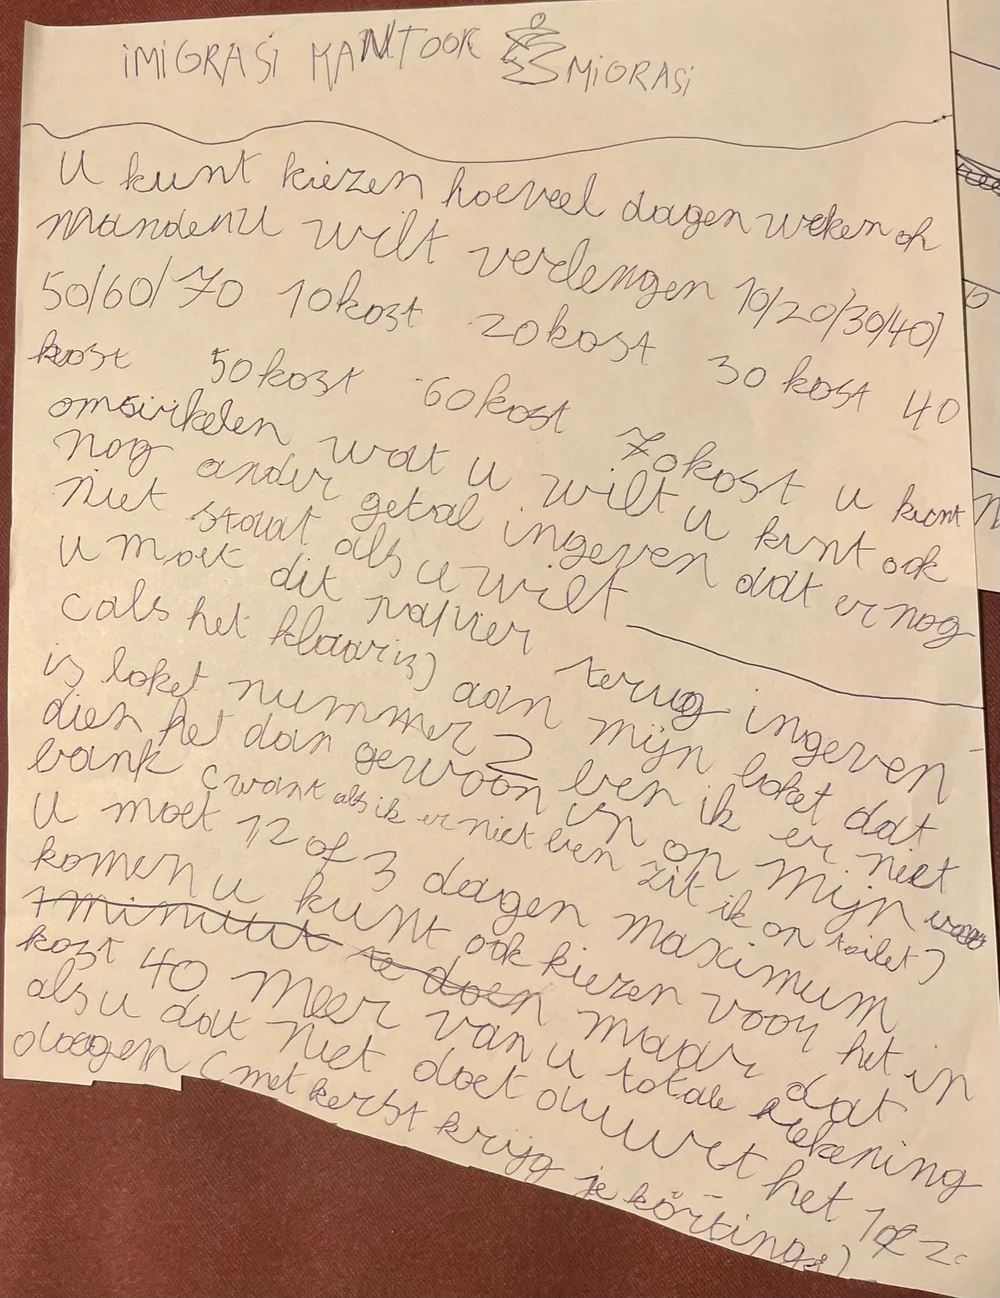 iMiGRASi KANTOOR EMiGRASi
U kunt kiezen hoeveel dagen weken of
mandenU wilt verlengen 10/20/30/40/
50/60/70 10kost 20kost 30 kost 40
kost 50kost 60kost 70kost U kunt
omsirkelen wat u wilt u kunt ook
nog ander getal ingeven dat er nog
niet staat als u wilt
U moet dit papier terug ingeven
(als het klaar is) aan mijn loket dat
is loket nummer 2 ben ik er niet
dien het dan gewoon in op mijn
bank (want als ik er niet ben zit ik op toilet)
U moet 12 of 3 dagen maximum
komen u kunt ook kiezen voor het in
1 minuut te doen maar dat
kost 40 meer van u totale rekening
als u dat niet doet duurt het 1of 2
daagen (met kerst krijg je kortings)